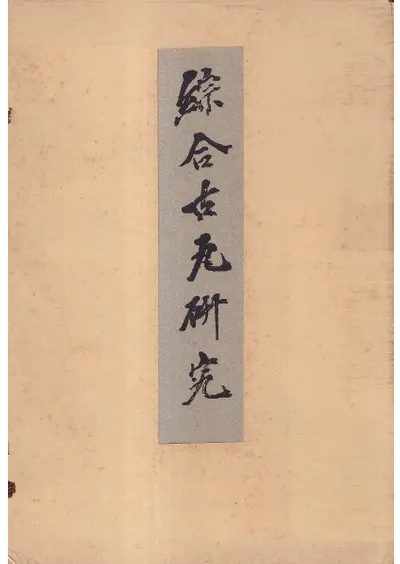 綜合古瓦研究